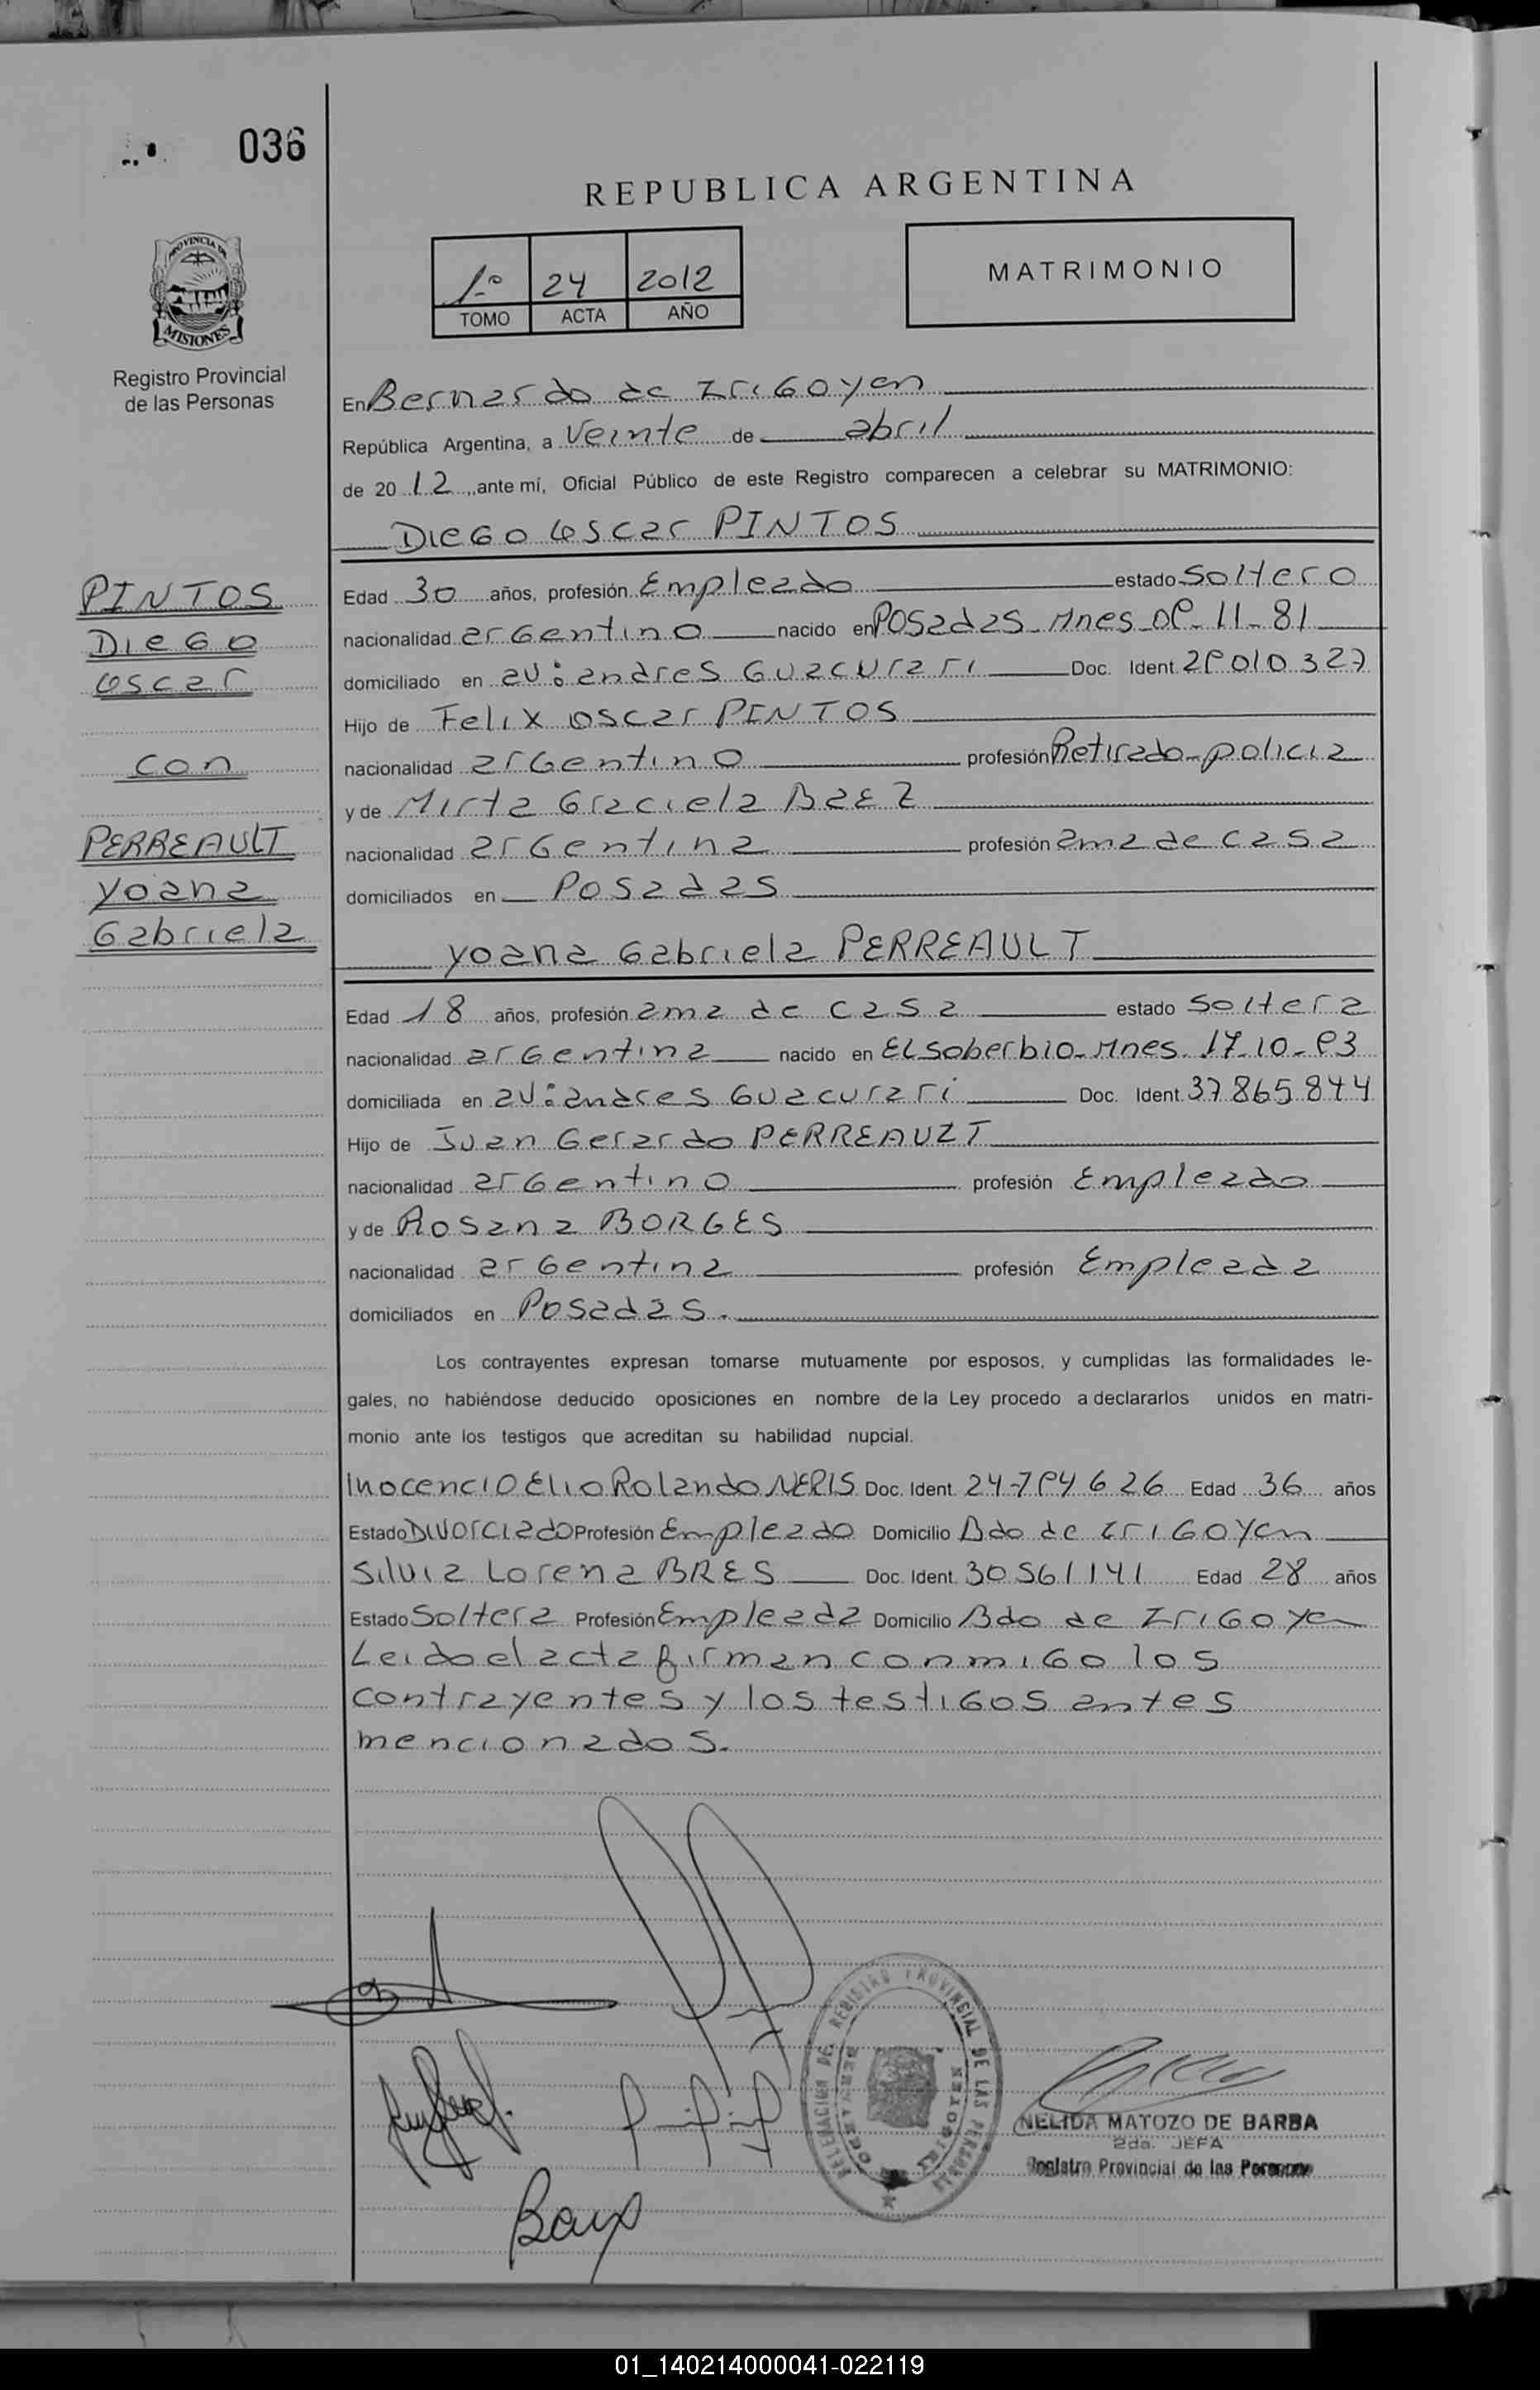 036
REPUBLICA ARGENTINA
1º 24 2012
TOMO ACTA AÑO
MATRIMONIO
PROVINCIA DE
MISIONES
Registro Provincial
de las Personas
En Bernardo de Irigoyen
República Argentina, a Veinte de abril
de 20 12, ante mí, Oficial Público de este Registro comparecen a celebrar su MATRIMONIO:
Diego Oscar PINTOS
PINTOS
Diego
Oscar
con
PERREAULT
Yoana
Gabriela
Edad 30 años, profesión Empleado estado Soltero
nacionalidad argentino nacido en Posadas - Mnes 11-81
domiciliado en av: andres Guacurari Doc. Ident. 010327
Hijo de Felix Oscar PINTOS
nacionalidad argentino profesión Retirado - policia
y de Mirta Graciela BAEZ
nacionalidad argentina profesión ama de casa
domiciliados en Posadas
Yoana Gabriela PERREAULT
Edad 18 años, profesión ama de casa estado Soltera
nacionalidad argentina nacido en El Soberbio - Mnes. 10-
domiciliada en av: andres Guacurari Doc. Ident. 37865844
Hijo de Juan Gerardo PERREAULT
nacionalidad argentino profesión Empleado
y de Rosana BORGES
nacionalidad argentina profesión Empleada
domiciliados en Posadas.
Los contrayentes expresan tomarse mutuamente por esposos, y cumplidas las formalidades le-
gales, no habiéndose deducido oposiciones en nombre de la Ley procedo a declararlos unidos en matri-
monio ante los testigos que acreditan su habilidad nupcial.
Inocencio Elio Rolando NERIS Doc. Ident. Edad 36 años
Estado Divorciado Profesión Empleado Domicilio Bdo de Irigoyen
Silvia Lorena BRES Doc. Ident. 30561141 Edad 28 años
Estado Soltera Profesión Empleada Domicilio Bdo de Irigoyen
Leido el acta firman conmigo los
contrayentes y los testigos antes
mencionados.
DELEGACION DEL REGISTRO PROVINCIAL DE LAS PERSONAS
BERNARDO
NELIDA MATOZO DE BARBA
2da. JEFA
Registro Provincial de las Personas
01_140214000041-022119